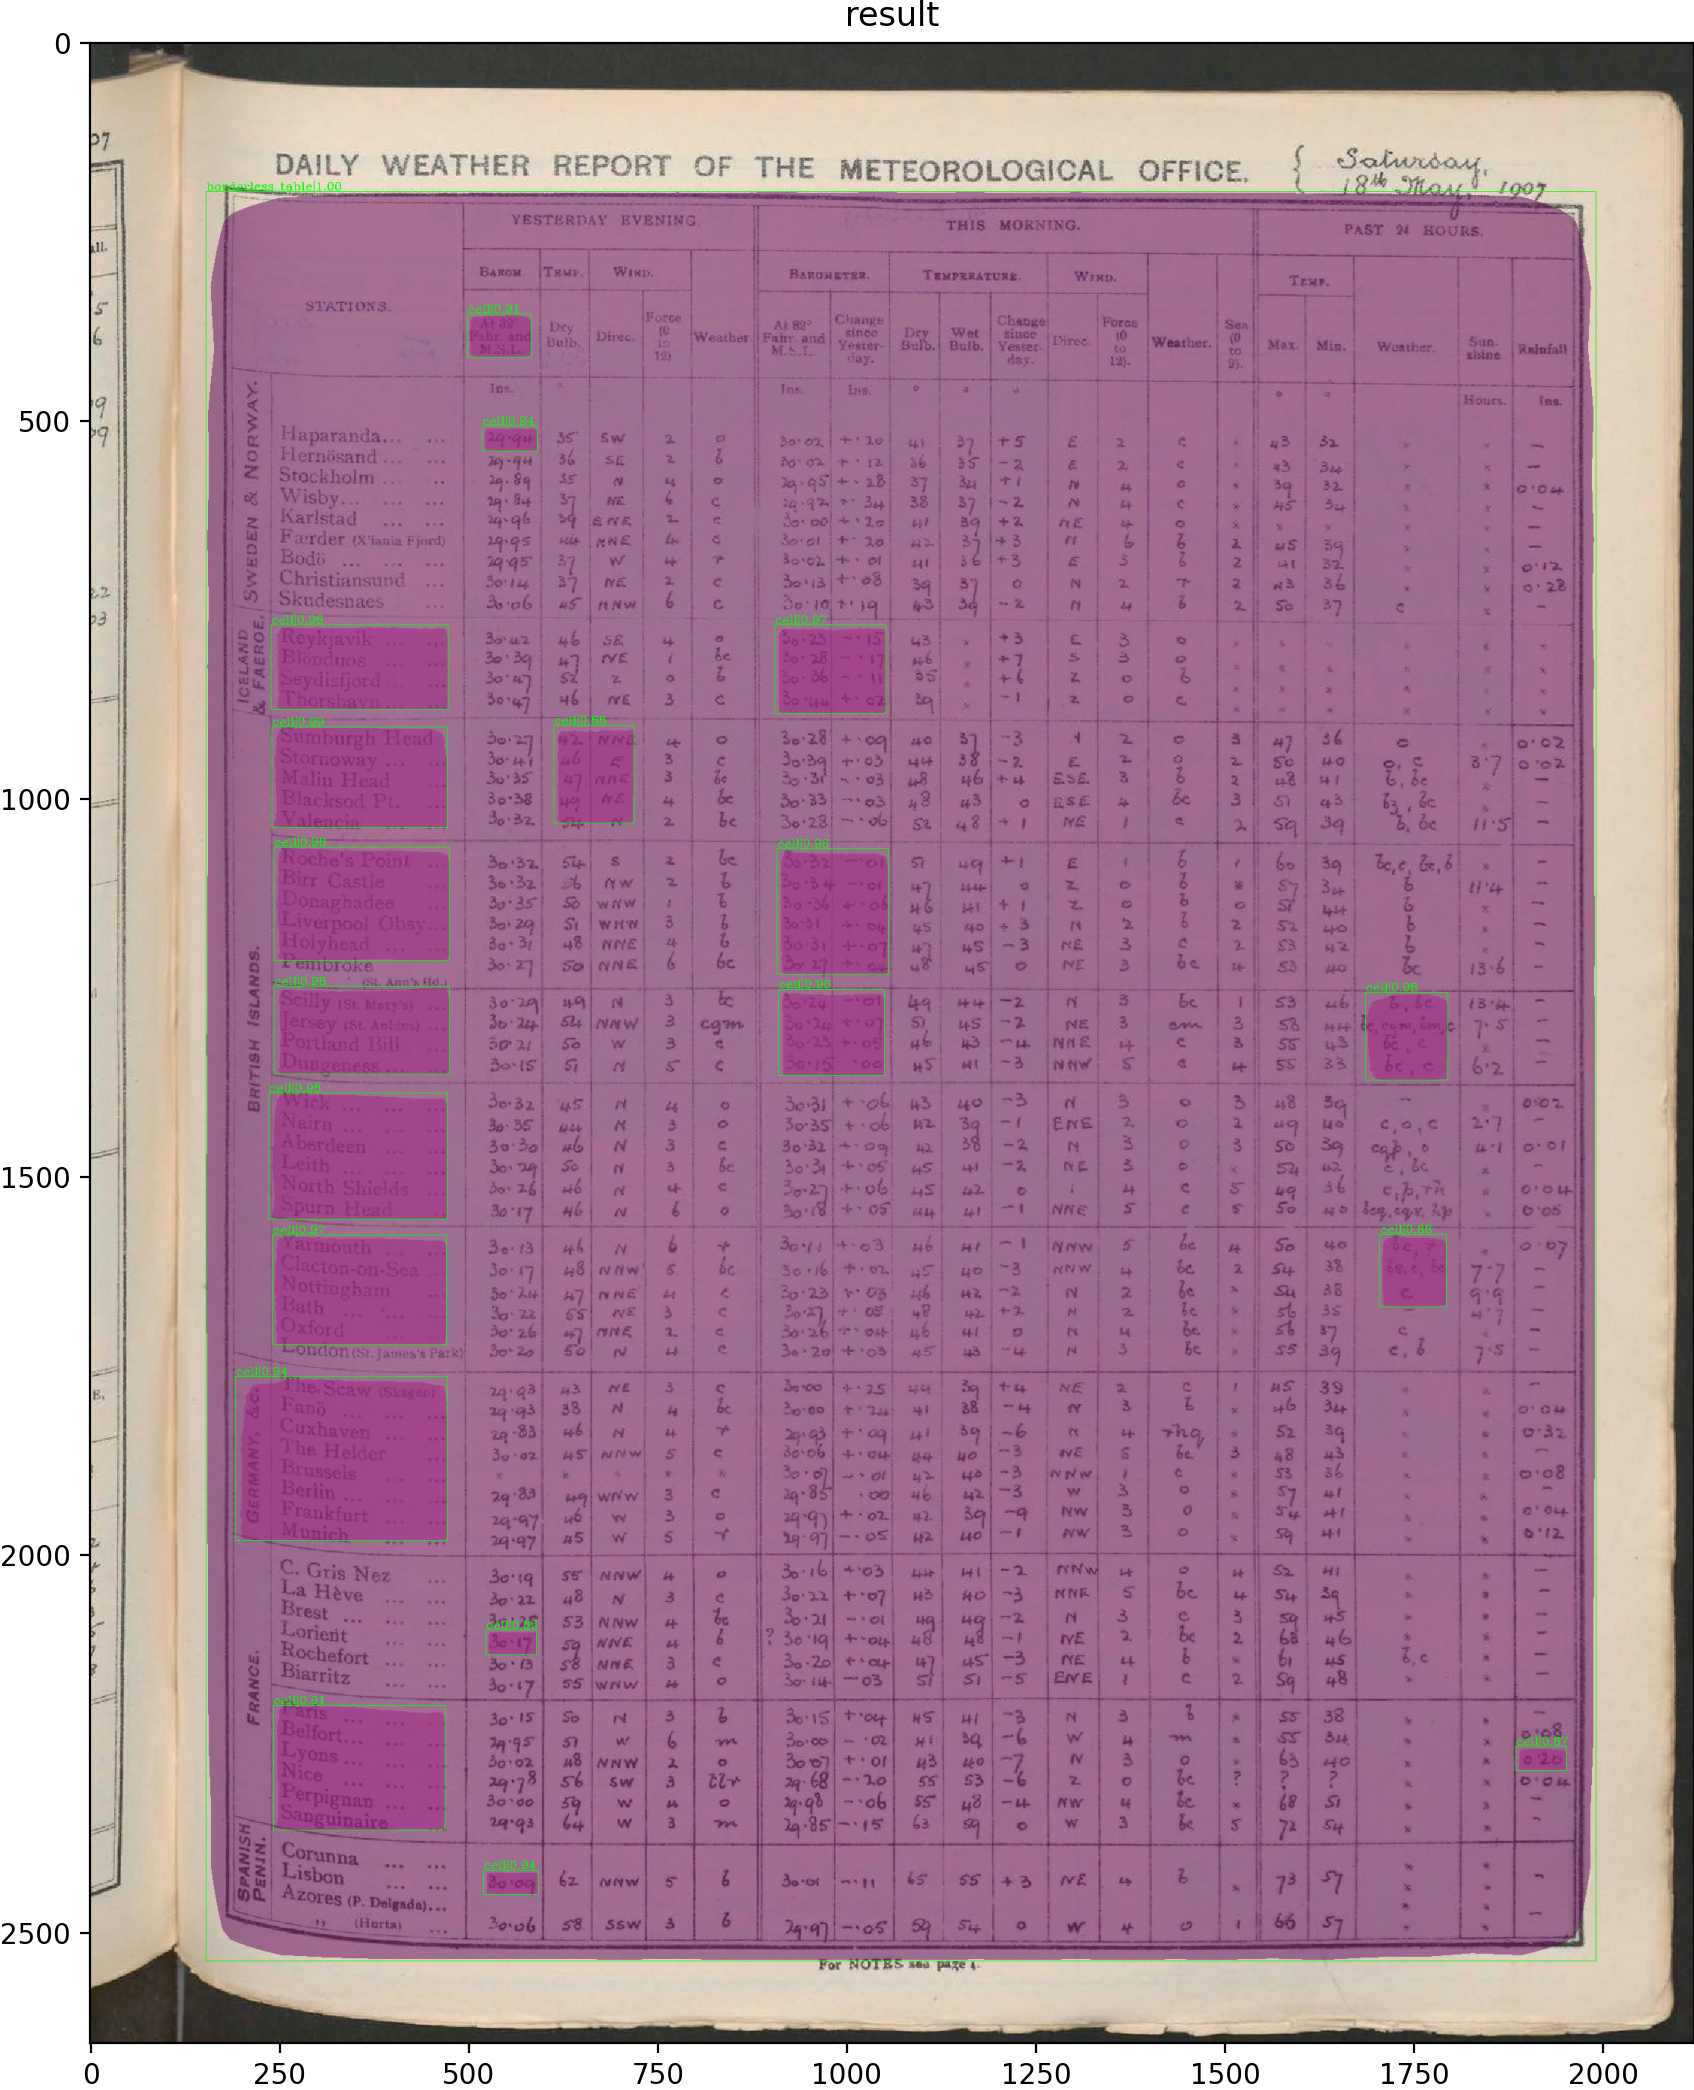 result
DAILY WEATHER REPORT OF THE METEOROLOGICAL OFFICE. { Saturday,
18th May, 1907
borderless_table|1.00
YESTERDAY EVENING. THIS MORNING. PAST 24 HOURS.
STATIONS. BAROM. TEMP. WIND. BAROMETER. TEMPERATURE. WIND. TEMP.
At 32° Fahr. and M.S.L. Dry Bulb. Direc. Force (0 to 12) Weather. At 32° Fahr. and M.S.L. Change since Yester-day. Dry Bulb. Wet Bulb. Change since Yester-day. Direc. Force (0 to 12). Weather. Sea (0 to 9). Max. Min. Weather. Sun-shine Rainfall
Ins. ° Ins. Ins. ° ° ° ° ° Hours. Ins.
SWEDEN & NORWAY.
Haparanda... ... 29.94 35 SW 2 o 30.02 +.20 41 37 +5 E 2 c × 43 32 × × —
Hernösand ... ... 29.94 36 SE 2 b 30.02 +.12 36 35 -2 E 2 c × 43 34 × × —
Stockholm ... .. 29.89 35 N 4 o 29.95 +.28 37 34 +1 N 4 o × 39 32 × × 0.04
Wisby... ... ... 29.84 37 NE 6 c 29.92 +.34 38 37 -2 N 4 c × 45 34 × × —
Karlstad ... ... 29.96 39 ENE 2 c 30.00 +.20 41 39 +2 NE 4 o × × × × × —
Færder (X'iania Fjord) 29.95 44 NNE 4 c 30.01 +.20 42 37 +3 N 6 b 2 45 39 × × —
Bodö ... ... ... 29.95 37 W 4 r 30.02 +.01 41 36 +3 E 3 b 2 41 32 × × 0.12
Christiansund ... 30.14 37 NE 2 c 30.13 +.08 39 37 0 N 2 r 2 43 36 × × 0.28
Skudesnaes ... 30.06 45 NNW 6 c 30.10 +.19 43 39 -2 N 4 b 2 50 37 c × —
ICELAND & FAEROE.
Reykjavik ... ... 30.42 46 SE 4 o 30.23 -.15 43 × +3 E 3 o × × × × × ×
Blönduos ... ... 30.39 47 NE 1 bc 30.28 -.17 46 × +7 S 3 o × × × × × ×
Seydisfjord ... ... 30.47 52 Z 0 b 30.36 -.11 35 × +6 Z 0 b × × × × × ×
Thorshavn ... ... 30.47 46 NE 3 c 30.44 +.02 39 × -1 Z 0 c × × × × × ×
BRITISH ISLANDS.
Sumburgh Head 30.27 42 NNE 4 o 30.28 +.09 40 37 -3 2 o 3 47 36 o × 0.02
Stornoway ... ... 30.41 46 E 3 c 30.39 +.03 44 38 -2 E 2 o 2 50 40 o, c 3.7 0.02
Malin Head ... 30.35 47 NNE 3 bc 30.31 -.03 48 46 +4 ESE 3 b 2 48 41 b, bc × —
Blacksod Pt. ... 30.38 49 NE 4 bc 30.33 -.03 48 43 0 ESE 4 bc 3 51 43 bz, bc × —
Valencia ... ... 30.32 54 N 2 bc 30.28 -.06 52 48 +1 NE 1 c 2 59 39 b, bc 11.5 —
Roche's Point ... 30.32 54 S 2 bc 30.32 -.01 51 49 +1 E 1 b 1 60 39 bc,c, bc,b × —
Birr Castle ... 30.32 56 NW 2 b 30.34 -.01 47 44 0 Z 0 b × 57 34 b 11.4 —
Donaghadee ... 30.35 50 WNW 1 b 30.36 +.06 46 41 +1 Z 0 b 0 51 44 b × —
Liverpool Obsy... 30.29 51 WNW 3 b 30.31 +.04 45 40 +3 N 2 b 2 52 40 b × —
Holyhead ... ... 30.31 48 NNE 4 b 30.31 +.07 47 45 -3 NE 3 c 2 53 42 b × —
Pembroke (St. Ann's Hd.) 30.27 50 NNE 6 bc 30.27 +.04 48 45 0 NE 3 bc 4 53 40 bc 13.6 —
Scilly (St. Mary's) 30.29 49 N 3 bc 30.24 -.01 49 44 -2 N 3 bc 1 53 46 b, bc 13.4 —
Jersey (St. Aubins) 30.24 54 NNW 3 cgm 30.24 +.07 51 45 -2 NE 3 cm 3 58 44 bc,cgm,bm,c 7.5 —
Portland Bill ... 30.21 50 W 3 c 30.23 +.05 46 43 -4 NNE 4 c 3 55 43 bc, c × —
Dungeness ... ... 30.15 51 N 5 c 30.15 .00 45 41 -3 NNW 5 c 4 55 33 bc, c 6.2 —
Wick ... ... ... 30.32 45 N 4 o 30.31 +.06 43 40 -3 N 3 o 3 48 39 — × 0.02
Nairn ... ... ... 30.35 44 N 3 o 30.35 +.06 42 39 -1 ENE 2 o 2 49 40 c,o,c 2.7 —
Aberdeen ... ... 30.30 46 N 3 c 30.32 +.09 42 38 -2 N 3 o 3 50 39 cqp, o 4.1 0.01
Leith ... ... ... 30.29 50 N 3 bc 30.31 +.05 45 41 -2 NE 3 o × 54 42 c, bc × —
North Shields ... 30.26 46 N 4 c 30.27 +.06 45 42 0 4 c 5 49 36 c,p,rh × 0.04
Spurn Head ... 30.17 46 N 6 o 30.18 +.05 44 41 -1 NNE 5 c 5 50 40 × 0.05
Yarmouth ... ... 30.13 46 N 6 r 30.11 +.03 46 41 -1 NNW 5 bc 4 50 40 bc, r × 0.07
Clacton-on-Sea ... 30.17 48 NNW 5 bc 30.16 +.02 45 40 -3 NNW 4 bc 2 54 38 7.7 —
Nottingham ... 30.24 47 NNE 4 c 30.23 +.03 46 42 -2 N 2 bc × 54 38 c 9.9 —
Bath ... ... ... 30.22 55 NE 3 c 30.27 +.05 48 42 +2 N 2 bc × 56 35 — 4.7 —
Oxford ... ... 30.26 47 NNE 2 c 30.26 +.04 46 41 0 N 4 bc × 56 37 c × —
London (St. James's Park) 30.20 50 N 4 c 30.20 +.03 45 43 -4 N 3 bc × 55 39 c, b 7.5 —
GERMANY, &c.
The Scaw (Skagen) 29.93 43 NE 3 c 30.00 +.25 44 39 +4 NE 2 c 1 45 39 × × —
Fanö ... ... ... 29.93 38 N 4 bc 30.00 +.24 41 38 -4 N 3 b × 46 34 × × 0.04
Cuxhaven ... ... 29.83 46 N 4 r 29.93 +.09 41 39 -6 N 4 rhq × 52 39 × × 0.32
The Helder ... 30.02 45 NNW 5 c 30.06 +.04 44 40 -3 NE 5 bc 3 48 43 × × —
Brussels ... ... × × × × × 30.07 -.01 42 40 -3 NNW 1 c × 53 36 × × 0.08
Berlin ... ... ... 29.83 49 WNW 3 c 29.85 .00 46 42 -3 W 3 o × 57 41 × × —
Frankfurt ... ... 29.97 46 W 3 o 29.97 +.02 42 39 -9 NW 3 o × 54 41 × × 0.04
Munich ... ... 29.97 45 W 5 r 29.97 -.05 42 40 -1 NW 3 o × 59 41 × × 0.12
FRANCE.
C. Gris Nez ... 30.19 55 NNW 4 o 30.16 +.03 44 41 -2 NNW 4 o 4 52 41 × × —
La Hève ... 30.22 48 N 3 c 30.22 +.07 43 40 -3 NNE 5 bc 4 54 39 × × —
Brest ... ... ... 53 NNW 4 bc 30.21 -.01 49 49 -2 N 3 c 3 59 45 × × —
Lorient ... ... 30.17 59 NNE 4 b ? 30.19 +.04 48 48 -1 NE 2 bc 2 68 46 × × —
Rochefort ... ... 30.13 58 NNE 3 c 30.20 +.04 47 45 -3 NE 4 b × 61 45 b, c × —
Biarritz ... ... 30.17 55 WNW 4 o 30.14 -.03 51 51 -5 ENE 1 c 2 59 48 × × —
Paris ... ... ... 30.15 50 N 3 b 30.15 +.04 45 41 -3 N 3 b × 55 38 × × —
Belfort... ... ... 29.95 51 W 6 m 30.00 -.02 41 39 -6 W 4 m × 55 34 × × 0.08
Lyons ... ... ... 30.02 48 NNW 2 o 30.07 +.01 43 40 -7 N 3 o × 63 40 × × 0.20
Nice ... ... ... 29.78 56 SW 3 29.68 -.20 55 53 -6 Z 0 bc ? ? ? × × 0.04
Perpignan ... ... 30.00 59 W 4 o 29.98 -.06 55 48 -4 NW 4 bc × 68 51 × × —
Sanguinaire ... 29.93 64 W 3 m 29.85 -.15 63 59 0 W 3 bc 5 72 54 × × —
SPANISH PENIN.
Corunna ... ...
Lisbon ... ... 30.09 62 NNW 5 b 30.01 -.11 65 55 +3 NE 4 b × 73 57 × × —
Azores (P. Delgada)...
,, (Horta) ... 30.06 58 SSW 3 b 29.97 -.05 59 54 0 W 4 o 1 66 57 × × —
For NOTES see page 4.
0
500
1000
1500
2000
2500
0 250 500 750 1000 1250 1500 1750 2000